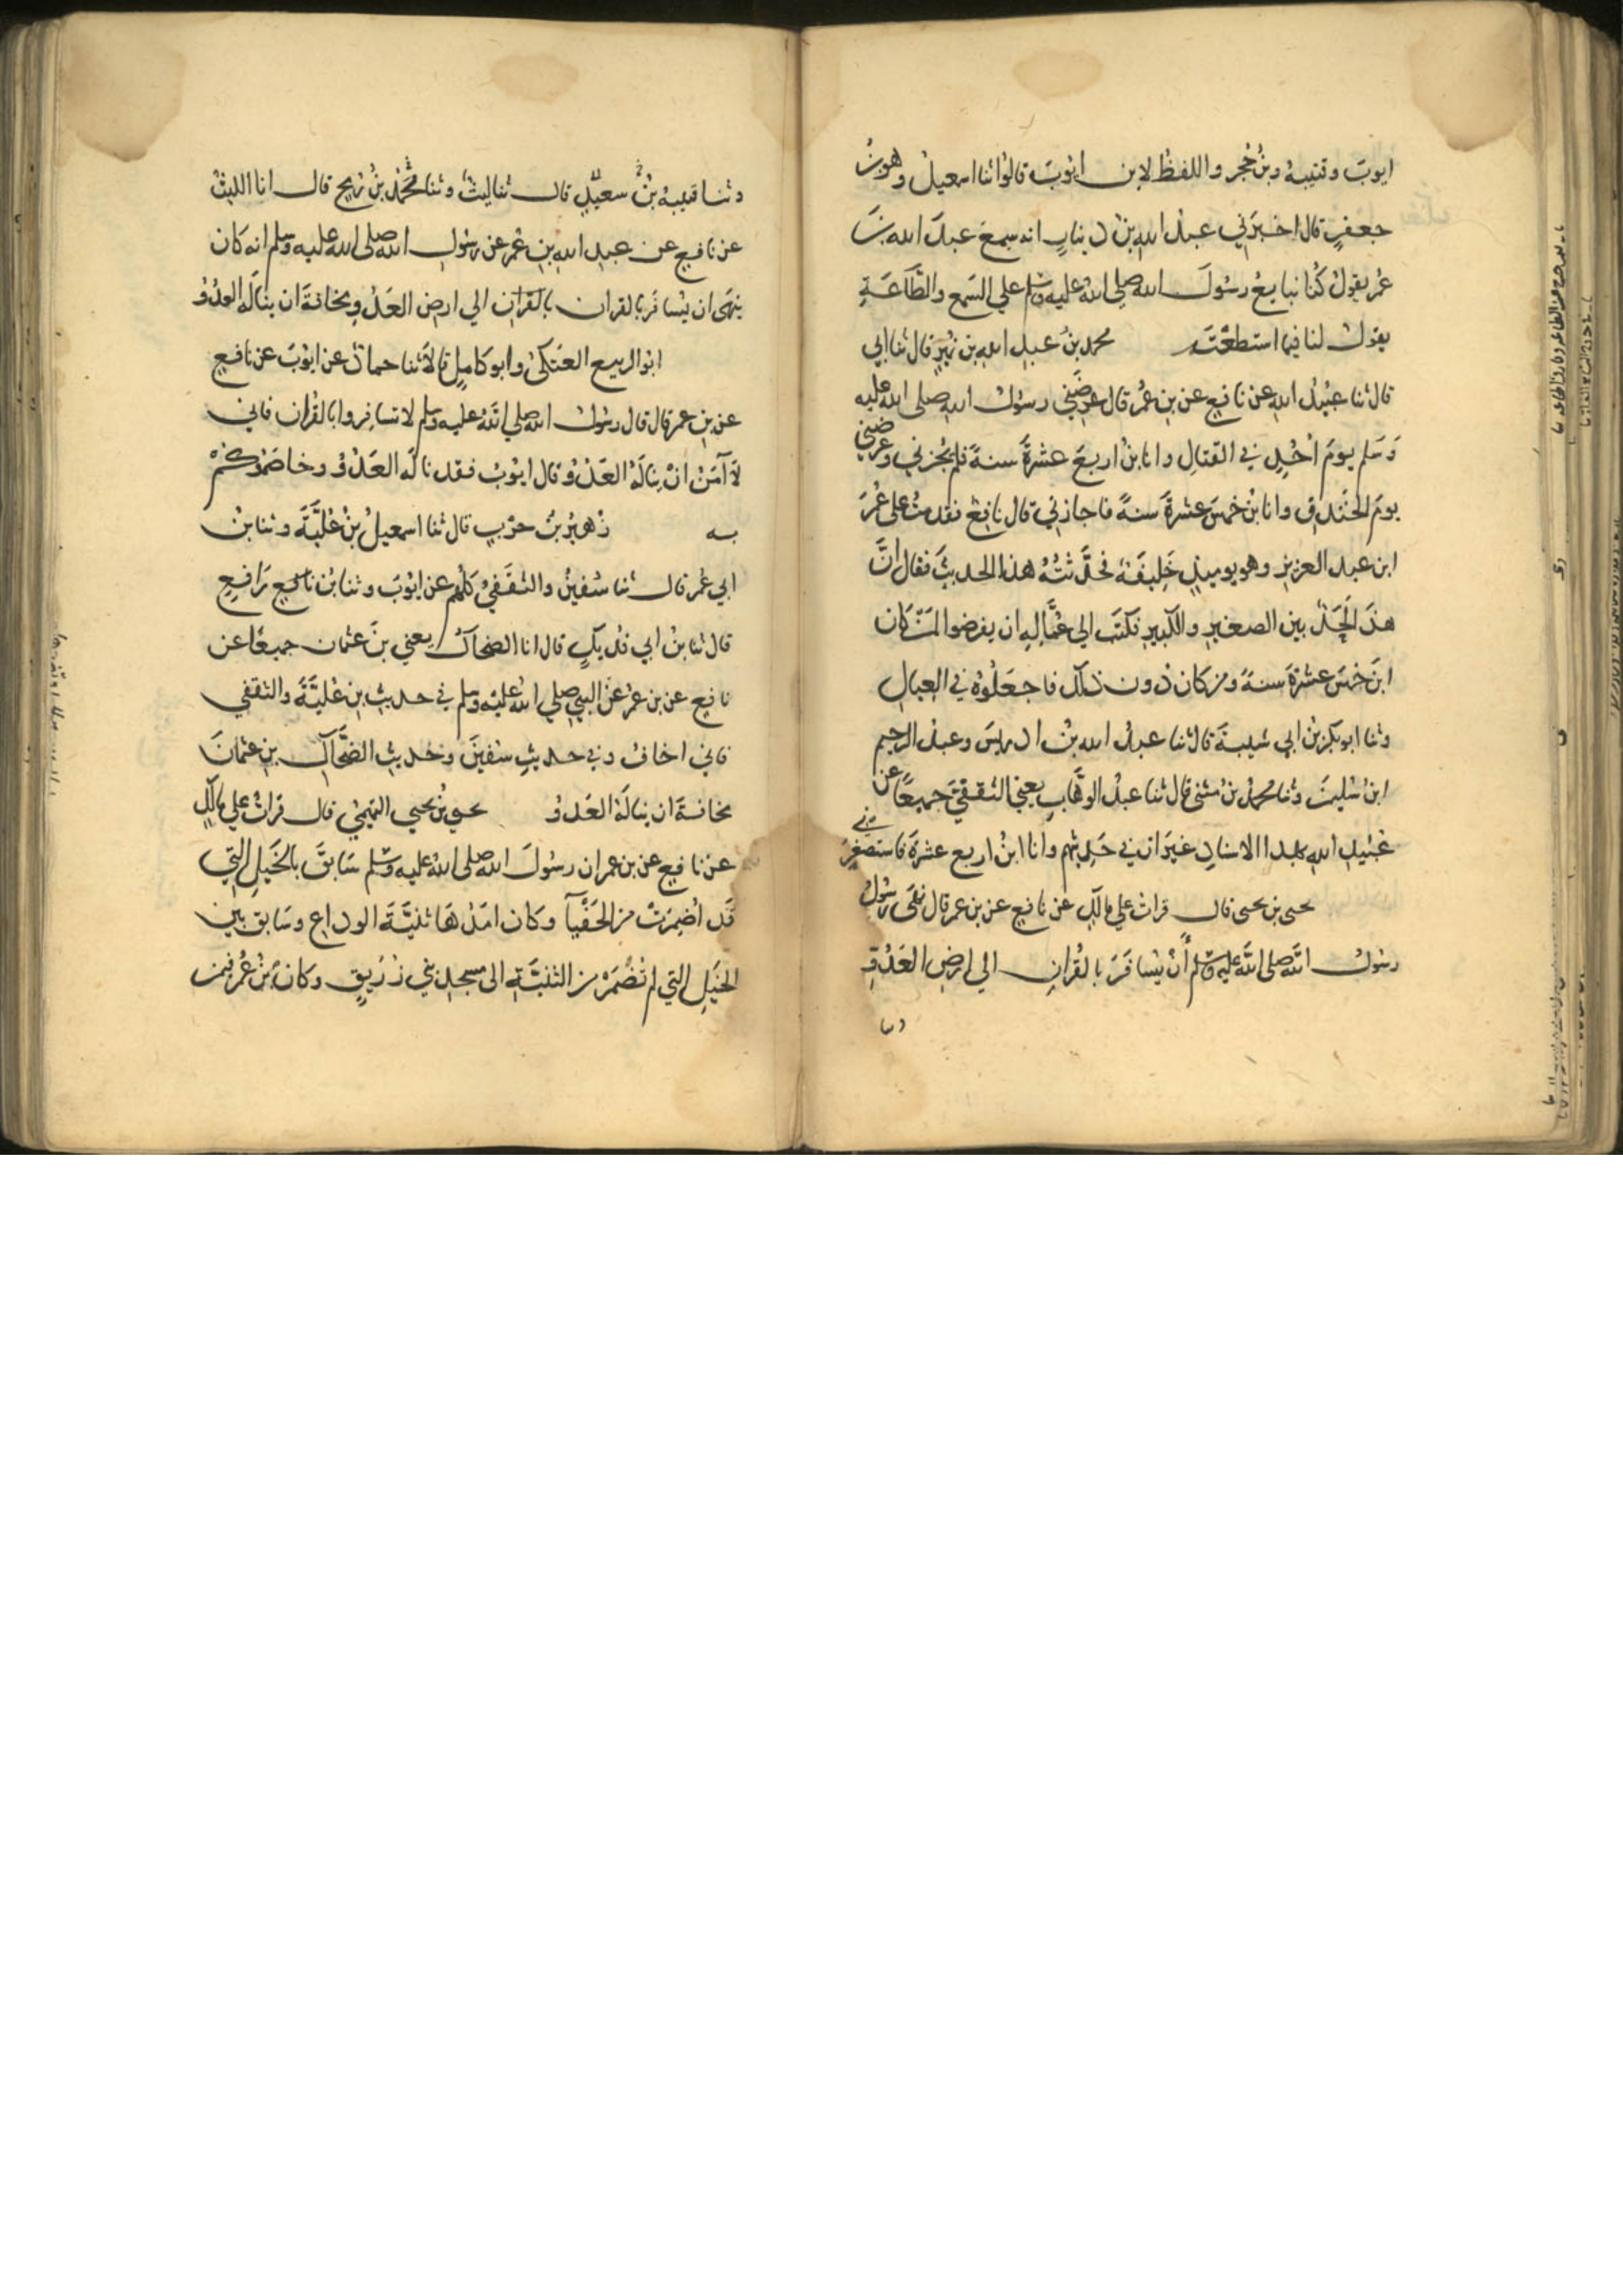 ايوبَ وقتيبة وبنُ حُجر واللفظُ لابن ايوبَ قالوُا ثنا اسمعيلُ وهوبنُ
جعفرٍ قال اخبرَني عبدُ اللهِ بنُ دينارٍ انه سمعَ عبدَ الله بنَ
عُمر يقولُ كُنا نبايعُ رسُولَ الله صلى اللهُ عليه وسَلم علي السَمع والطَّاعَةِ
يقولُ لنا فيما استطعتَ محمد بنُ عبدِ اللهِ بن نُميرٍ قال ثنا ابي
قال ثنا عبيدُ اللهِ عن نافعٍ عن بن عُمرَ قال عرضَني رسولُ اللهِ صلى اللهُ عليه
وَسَلم يومَ اُحُدٍ في القتالِ وانا بنُ اربعَ عشرةَ سنةً فلم يُجزني وعرضَني
يومَ الخندقِ وانا بنُ خمسَ عشرةَ سنةً فاجازني قال نافعٌ فقدمتُ على عُمرَ
ابن عبد العزيزِ وهو يوميذٍ خَلِيفَةٌ فحدَّثتُهُ هذا الحديثَ فقال انَّ
هذَ الَحَدٌّ بين الصغيرِ والكبيرِ فكتَب الي عُمَّالِهِ ان يفرضوا لمَنْ كان
ابنَ خمسَ عشرةَ سنةً ومن كان دون ذلك فاجعَلُوهُ في العِيالِ
وثنا ابو بكر بنُ ابي شيبةَ قال ثنا عبدُ الله بنُ ادريسَ وعبدُ الرحيم
ابنُ سُليمَن وثنا محمدُ بن مثنى قال ثنا عبدُ الوهَّابِ يعني الثقفيَّ جميعًا عن
عُبَيدِ اللهِ بهذا الاسنادِ غيرَ ان في حَدِيثهم وانا ابنُ اربع عشرةَ فاستصغَرَني
يحيى بن يحيى قال قراتُ علي مالكٍ عن نافعٍ عن بن عمر قال نهَى رسُولُ
رسُولُ اللَّهِ صلى اللَّهُ عليه وسَلم أَنْ يُسافَرَ بالقُرانِ الي ارضِ العَدُوِّ
وثنا
وثنا قتيبةُ بنُ سعيدٍ قال ثنا ليثٌ وثنا محُمَّدُ بنُ رُمحٍ قال انا الليثُ
عن نافعٍ عن عبدِ اللهِ بنِ عُمرَ عن رسُولِ اللهِ صلى اللهُ عليه وسَلم انه كان
ينهَى ان يُسافَر بالقران بالقرانِ الي ارضِ العَدُوِ مخافةَ ان ينالَهُ العدُوُ
ابوُ الربيع العَتكيُ وابو كاملٍ قالاَ ثنا حمادٌ عن ايوُبَ عن نافعٍ
عن بنِ عمر قال قال رسُولُ اللهِ صلي اللَّهُ عليه وسَلم لا تسافِروا بالقُران فاني
لاَ آمَنُ انْ ينالَهُ العَدُوُ قال ايوُبُ فقد نالَهُ العَدُوُ وخاصَمُوكُمْ
به زُهيرُ بنُ حرْبٍ قال ثنا اسمعيلُ بنُ عُليَّةَ وثنا بنُ
ابي عُمر قال ثنا سُفينُ والثقَفيُ كلُهُم عن ايوُبَ وثنا بنُ رَافعٍ
قال ثنا بنُ ابي فديكٍ قال انا الضحاكُ يعني بنَ عثمان جميعًا عن
نافعٍ عن بن عُمرَ عن النبي صلي اللهُ عليه وسلم في حديثِ بنِ عُليَّةَ والثقفي
فاني اخافُ وفي حديثِ سُفينَ وحديثِ الضحَّاكِ بنِ عثمانَ
مخافةَ ان ينالَهُ العَدوُ يحيى بنُ يحيي التميميُ قال قراتُ علي مالكٍ
عن نافعٍ عن بن عمر ان رسُولَ اللهِ صلى اللهُ عليه وسَلم سَابقَ بالخَيلِ التي
قَد اُضمِرَتْ من الحَفْيآ وكان امَدُهَا ثنيَّةَ الوداعِ وسَابق بين
الخيَلِ التي لم تُضْمَرْ من الثنيَّةِ الى مسجدِ بني زُرَيقٍ وكان بنُ عُمرَ فيمن